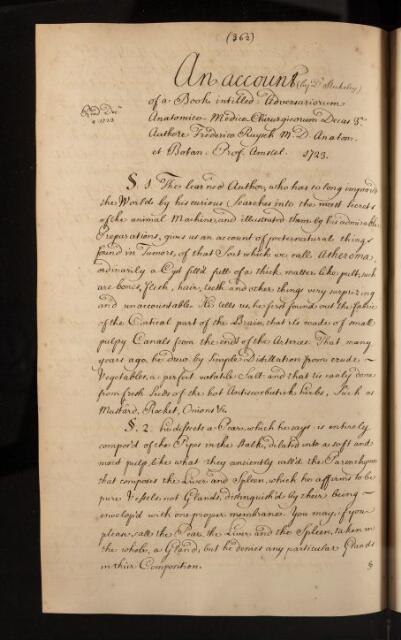 (362)
An account (by Dr. Stukeley)
of a Book intitled Adversariorum
Anatomico-Medico Chirurgicorum Decas 3a
Authore Frederico Ruysch M.D. Anatom.
et Botan. Prof. Amstel. 1723.
§. 1. The learned Author, who has so long improv'd
the World by his curious Searches into the most secrets
of the animal Machine, and illustrated them by his admirable
Preparations, gives us an account of preternatural things
found in Tumors, of that Sort which we call Atheroma,
ordinarily a Cyst fill'd full of a thick matter like pult, such
are bones, flesh, hair, teeth and other things very surprizing
and unaccountable. He tells us, he first found out the fabric
of the Cortical part of the Brain, that it is made of small
pulpy Canals from the ends of the Arteriae. That many
years ago, he drew by simple Distillation from crude
Vegetables, a perfect volatile Salt and that it is easily done
from fresh Seeds of the hot Antiscorbutick herbs, Such as
Mustard, Rocket, Onions &c.
§. 2. he disects a Pear, which he says is entirely
compos'd of the Pipes in the Stalk, dilated into a soft and
moist pulp, like what they anciently call'd the Parenchyma
that composes the Liver and Spleen, which he affirms to be
pure Vessels not Glands, distinguish'd by their being
envelop'd with one proper membrane. You may, if you
please, call the Pear, the Liver, and the Spleen, taken in
the whole, a Gland, but he denies any particular Glands
in their Composition.
§